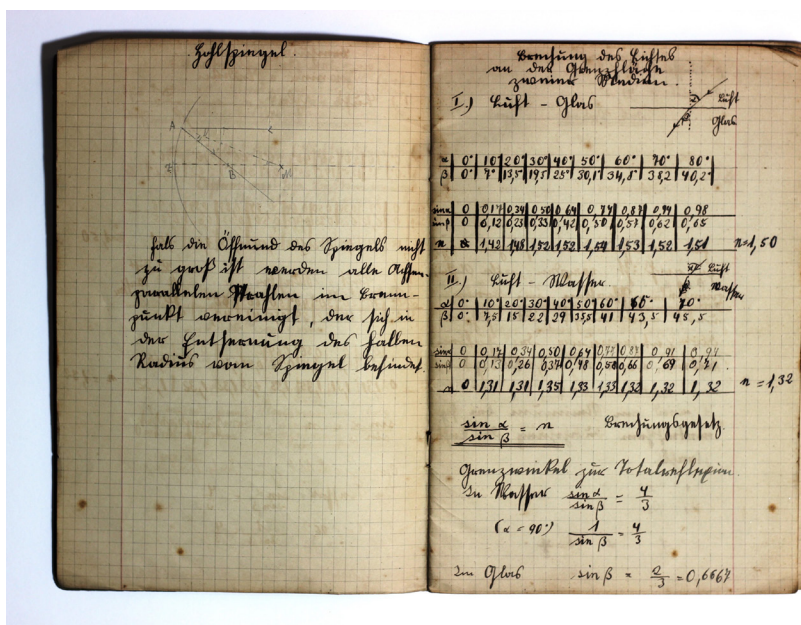 Hohlspiegel.
A
B
M
Falls die Öffnund des Spiegels nicht
zu groß ist werden alle Achsen-
parallelen Strahlen im Brenn-
punkt vereinigt, der sich in
der Entfernung des halben
Radius vom Spiegel befindet.
Brechung des Lichtes
an der Grenzfläche
zweier Medien.
I.) Luft - Glas
Luft
Glas
α 0° 10° 20° 30° 40° 50° 60° 70° 80°
β 0° 7° 13,5° 19,5 25° 30,1° 34,8° 38,2 40,2°
sin α 0 0,17 0,34 0,50 0,64 0,77 0,87 0,94 0,98
sin β 0 0,12 0,23 0,33 0,42 0,50 0,57 0,62 0,65
n 1,42 1,48 1,52 1,52 1,54 1,53 1,52 1,51 n=1,50
II.) Luft - Wasser.
Luft
Wasser
α 0° 10° 20° 30° 40° 50° 60° 70°
β 0° 7,5 15 22 29 35,5 41 43,5 45,5
sin α 0 0,17 0,34 0,50 0,64 0,77 0,87 0,91 0,94
sin β 0 0,13 0,26 0,37 0,48 0,58 0,66 0,69 0,71
n 0 1,31 1,31 1,35 1,33 1,33 1,32 1,32 1,32 n = 1,32
sin α / sin β = n Brechungsgesetz.
Grenzwinkel zur Totalreflexion.
In Wasser sin α / sin β = 4/3
(α = 90°) 1 / sin β = 4/3
Im Glas sin β = 2/3 = 0,6667